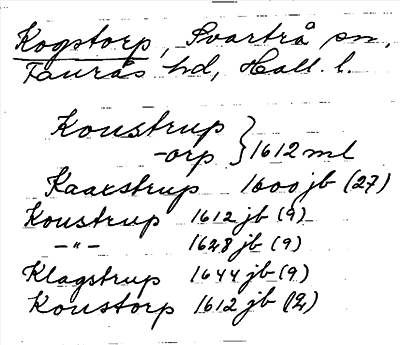 Kogstorp, Svartrå sn,
Faurås hd, Hall. l.
Konstrup
-orp } 1612 ml
Kaaxstrup 1600 jb (27)
Konstrup 1612 jb (9)
—"— 1628 jb (9)
Klagstrup 1644 jb (9)
Konstorp 1612 jb (2)